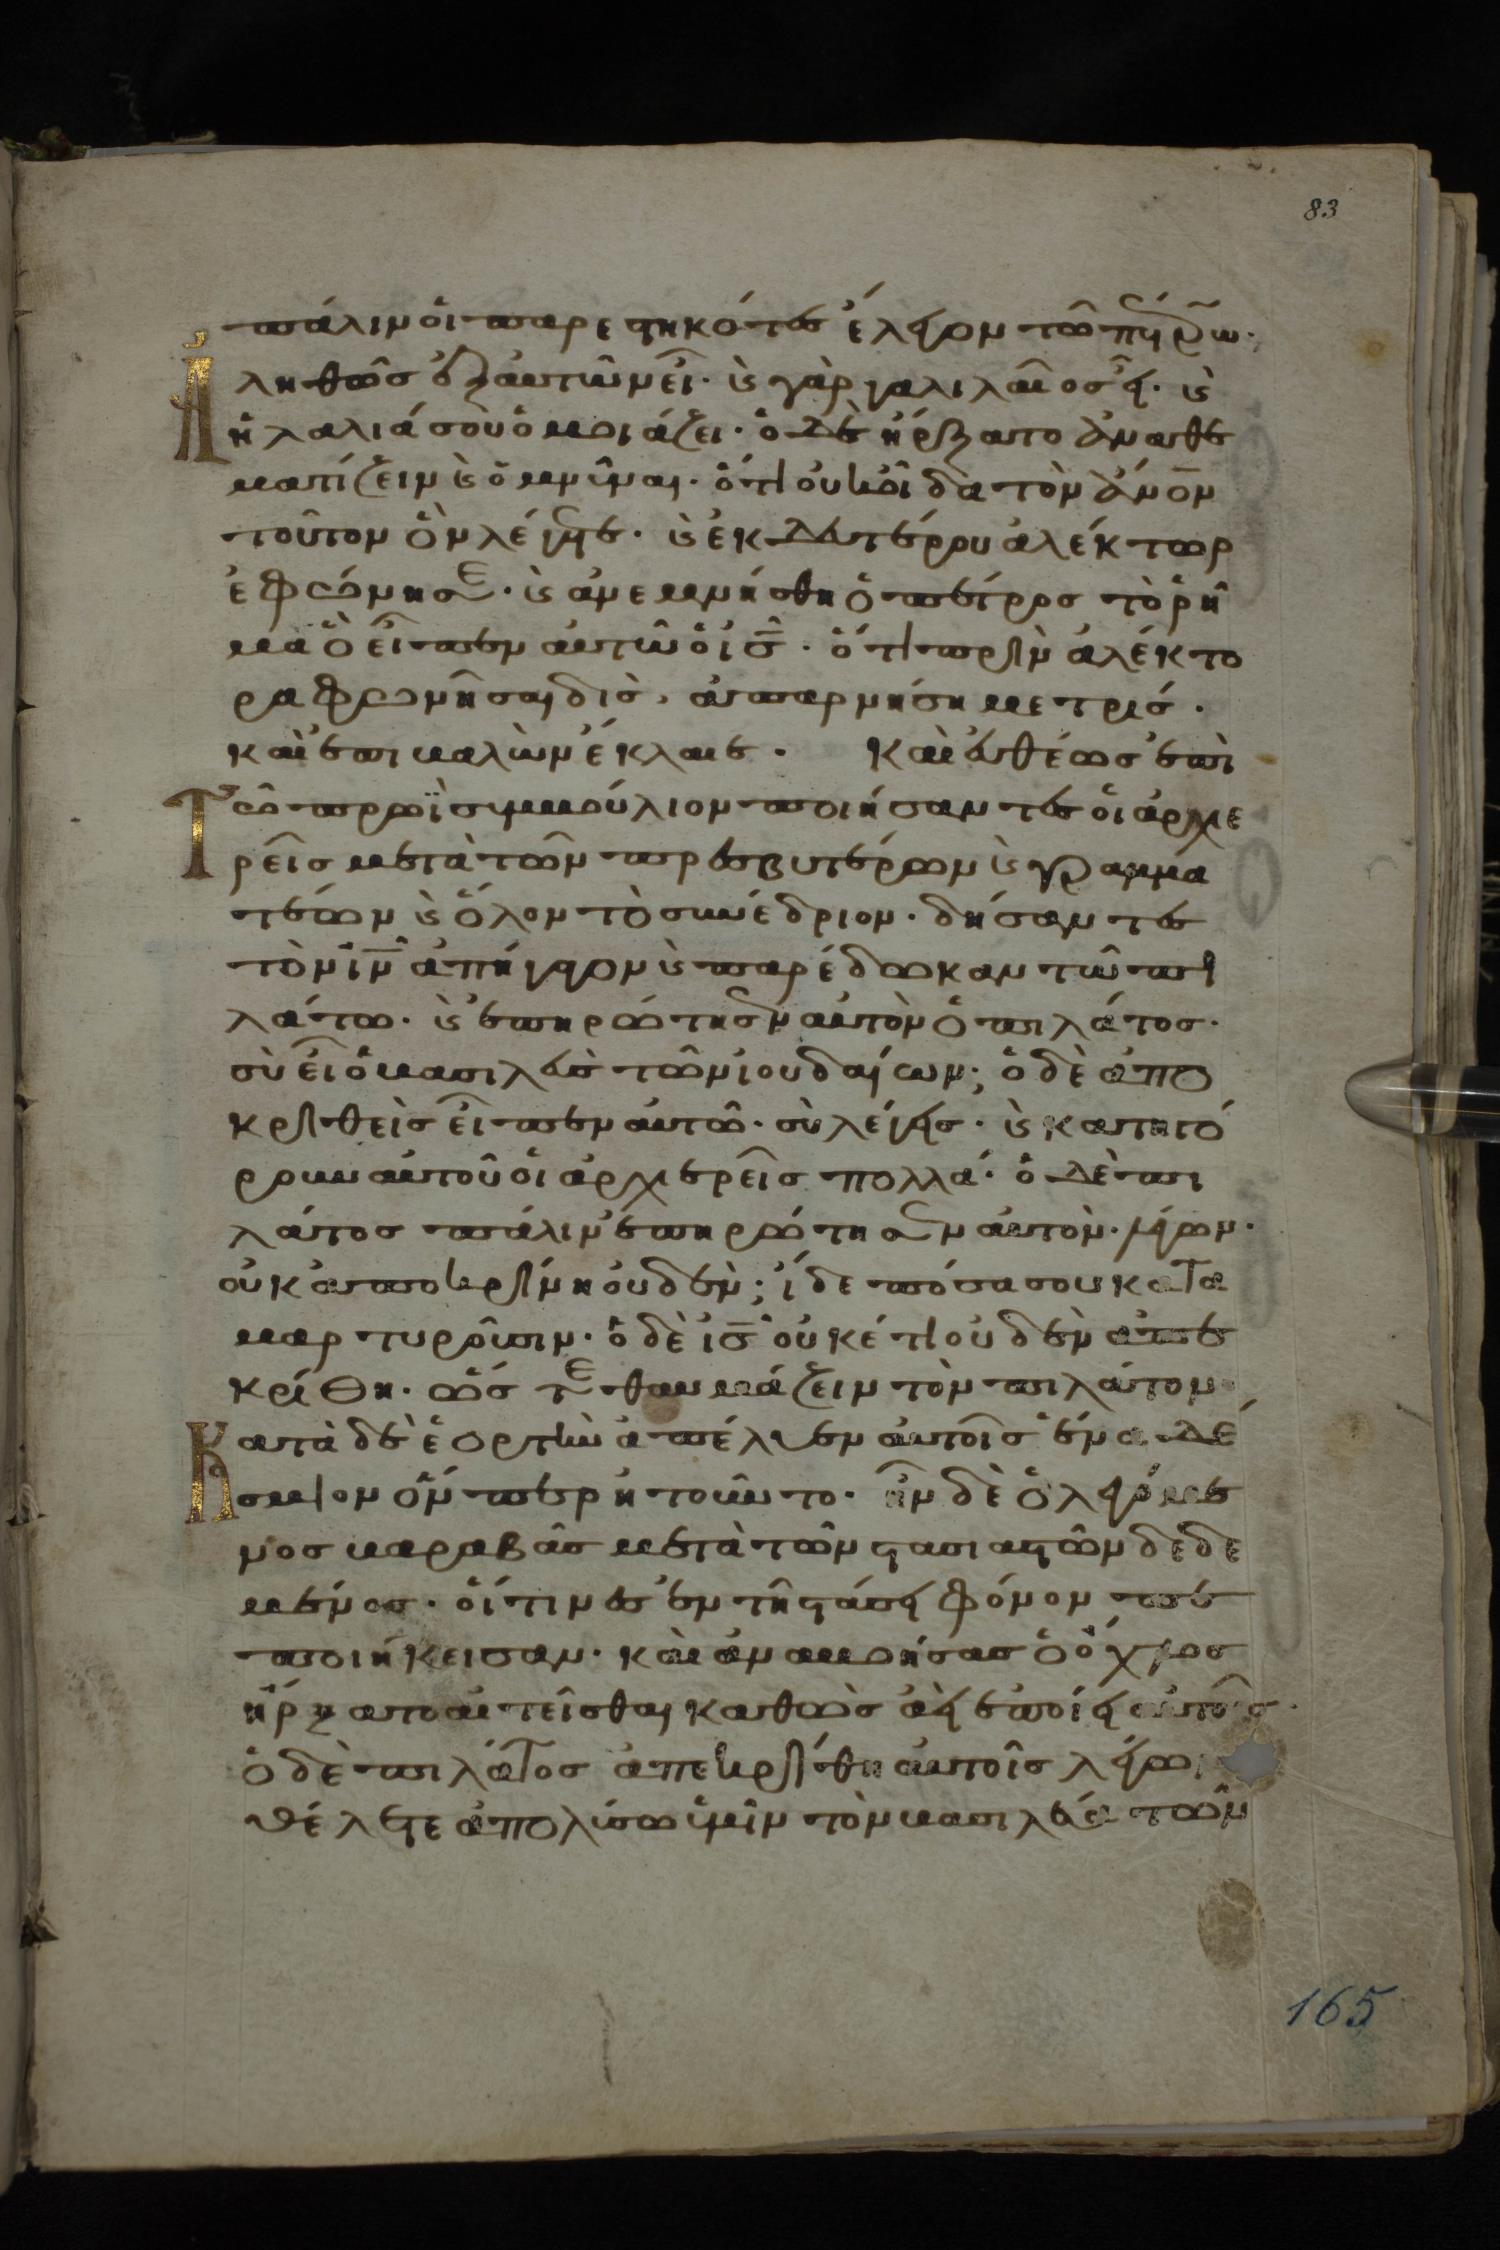 83
πάλιν οἱ παρεστηκότες ἔλεγον τῶ πέτρω·
Ἀληθῶς ἐξ αὐτῶν εἶ· καὶ γὰρ γαλιλαῖος εἶ· καὶ
ἡ λαλιά σου ὁμοιάζει· ὁ δὲ ἤρξατο ἀναθε
ματίζειν καὶ ὀμνύναι· ὅτι οὐκ οἶδα τὸν ἄν̅ον
τοῦτον ὃν λέγετε· καὶ ἐκ δευτέρου ἀλέκτωρ
ἐφώνησε· καὶ ἀνεμνήσθη ὁ πέτρος τὸ ῥῆ
μα ὃ εἶπεν αὐτῶ ὁ ι̅ς̅· ὅτι πρὶν ἀλέκτο
ρα φωνῆσαι δὶς, ἀπαρνήση με τρίς·
καὶ ἐπιβαλὼν ἔκλαιε· Καὶ εὐθέως ἐπὶ
Τὸ πρωῒ συμβούλιον ποιήσαντες οἱ ἀρχιε
ρεῖς μετὰ τῶν πρεσβυτέρων καὶ γραμμα
τέων καὶ ὅλον τὸ συνέδριον· δήσαντες
τὸν ι̅ν̅ ἀπήγαγον καὶ παρέδωκαν τῶ πι
λάτω· καὶ ἐπηρώτησεν αὐτὸν ὁ πιλάτος·
σὺ εἶ ὁ βασιλεὺς τῶν ἰουδαίων; ὁ δὲ ἀπο
κριθεὶς εἶπεν αὐτῶ· σὺ λέγεις· καὶ κατηγό
ρουν αὐτοῦ οἱ ἀρχιερεῖς πολλά· ὁ δὲ πι
λάτος πάλιν ἐπηρώτησεν αὐτὸν· λέγων·
οὐκ ἀποκρίνη οὐδέν; ἴδε πόσα σου κατα
μαρτυροῦσιν· ὁ δὲ ι̅ς̅ οὐκέτι οὐδὲν ἀπε
κρίθη· ὥστε θαυμάζειν τὸν πιλάτον
Κατὰ δὲ ἑορτὴν ἀπέλυεν αὐτοῖς ἕνα δέ
σμιον ὅνπερ ἠτοῦντο· ἦν δὲ ὁ λεγόμε
νος βαραββᾶς μετὰ τῶν στασιαστῶν δεδε
μένος· οἵτινες ἐν τῆ στάσει φόνον πε
ποιήκεισαν· καὶ ἀναβοήσας ὁ ὄχλος
ἤρξατο αἰτεῖσθαι καθὼς ἀεὶ ἐποίει αὐτοῖς·
ὁ δὲ πιλάτος ἀπεκρίθη αὐτοῖς λέγων
θέλετε ἀπολύσω ὑμῖν τὸν βασιλέα τῶν
165